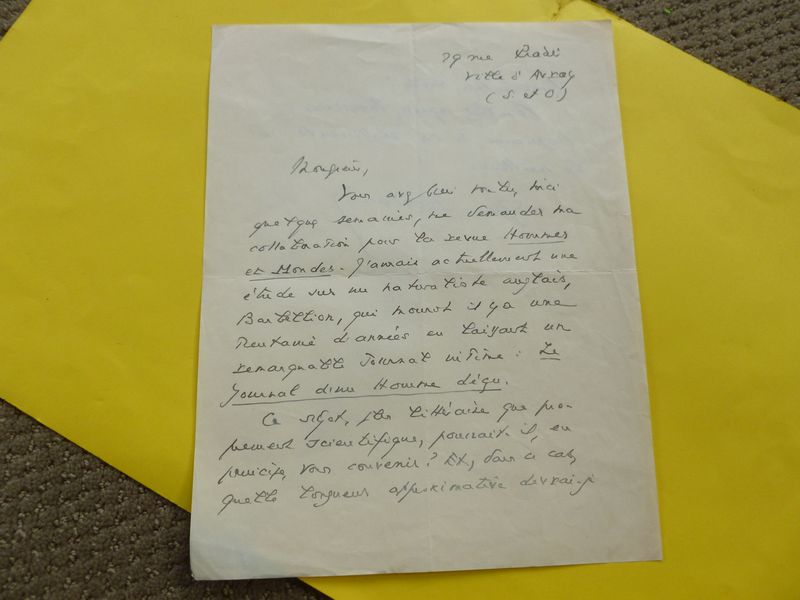 29 rue Pradier
Ville d'Avray
(S. et O)
Monsieur,
Vous avez bien voulu, voici
quelques semaines, me demander ma
collaboration pour la revue Hommes
et Mondes. J'aurais actuellement une
étude sur un naturaliste anglais,
Barbellion, qui mourut il y a une
trentaine d'années en laissant un
remarquable Journal intime : Le
Journal d'un Homme déçu.
Ce sujet, plus littéraire que pro-
prement scientifique, pourrait-il, en
principe, vous convenir ? Et, dans ce cas,
quelle longueur approximative devrai-je